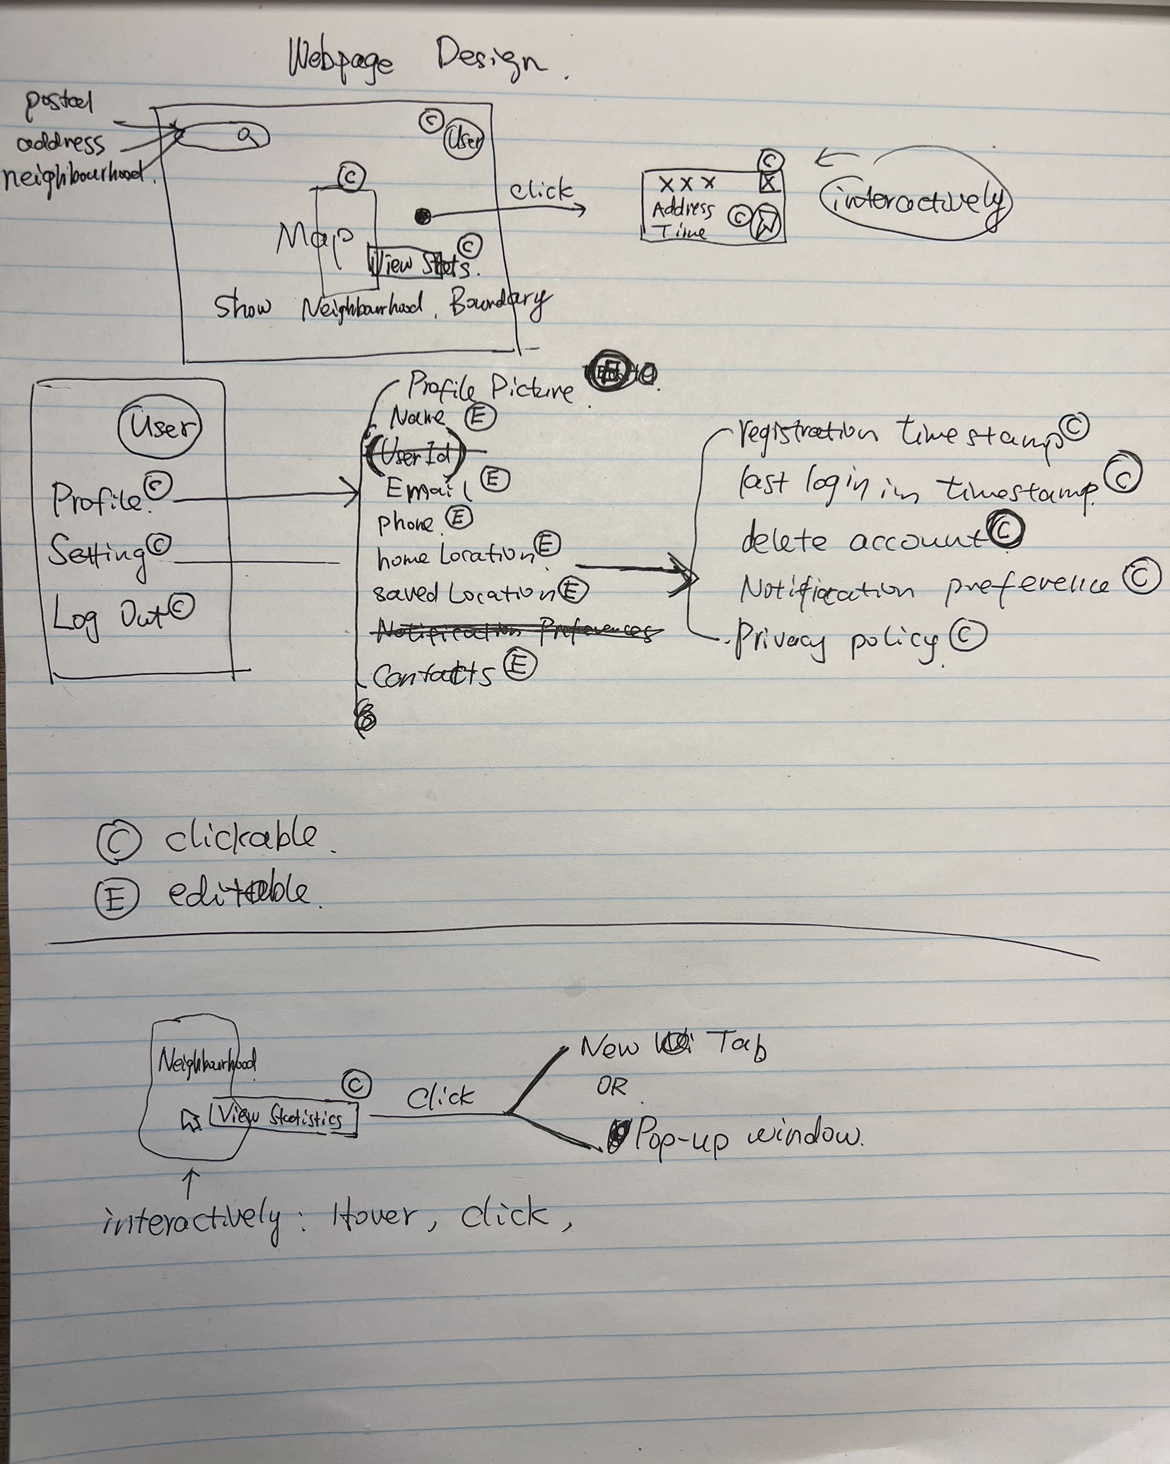 Webpage Design.
postal
address
neighbourhood.
C User
C
Map
View Stats. C
Show Neighbourhood. Boundary
click
C
x x x X
Address C
Time
interactively
User
Profile. C
Setting C
Log Out C
Profile Picture.
Name E
(User Id)
Email E
phone. E
home Location E
saved Location E
Notification Preferences
Contacts E
registration timestamp C
last login in timestamp. C
delete account C
Notification preference C
Privacy policy. C
C clickable.
E editable.
Neighbourhood
View Statistics C
Click
New Tab
OR
Pop-up window.
interactively: Hover, click,